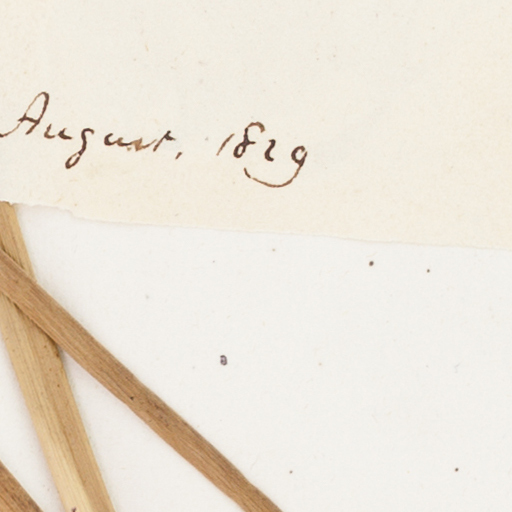 August, 1829